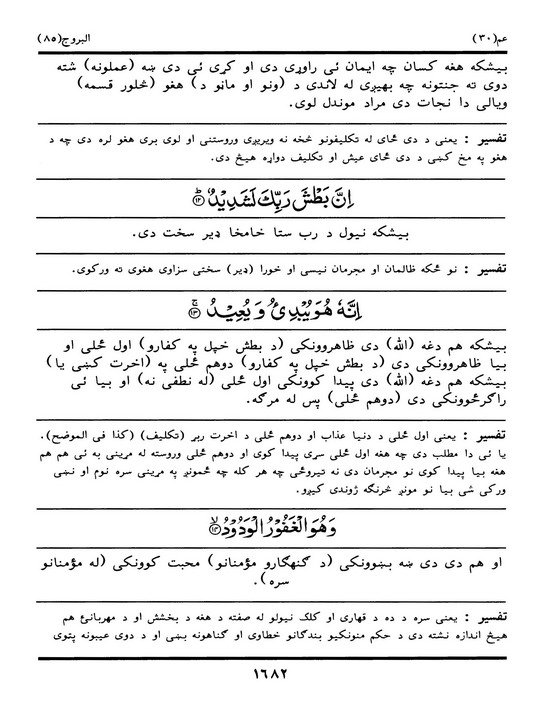 عم(۳۰) البروج(۸۵)
بېشکه هغه کسان چه ايمان ئی راوړی دی او کړی ئی دی ښه (عملونه) شته
دوی ته جنتونه چه بهيږی له لاندی د (ونو او ماڼو د) هغو (څلور قسمه)
ويالی دا نجات دی مراد موندل لوی.
تفسير : يعنی د دی ځای له تکليفونو څخه نه ويريږی وروستنی او لوی بری هغو لره دی چه د
هغو په مخ کښی د دی ځای عيش او تکليف دواړه هيڅ دی.
اِنَّ بَطْشَ رَبِّكَ لَشَدِيْدٌ ﴿۱۲﴾
بېشکه نيول د رب ستا خامخا ډير سخت دی.
تفسير : نو ځکه ظالمان او مجرمان نيسی او خورا (ډير) سختی سزاوی هغوی ته ورکوی.
اِنَّهٗ هُوَ يُبْدِئُ وَ يُعِيْدُ ﴿۱۳﴾
بېشکه هم دغه (الله) دی ظاهروونکی (د بطش خپل په کفارو) اول ځلی او
بيا ظاهروونکی دی (د بطش خپل په کفارو) دوهم ځلی په (اخرت کښی يا)
بېشکه هم دغه (الله) دی پيدا کوونکی اول ځلی (له نطفی نه) او بيا ئی
راګرځوونکی دی (دوهم ځلی) پس له مرګه.
تفسير : يعنی اول ځلی د دنيا عذاب او دوهم ځلی د اخرت ربړ (تکليف) (کذا فی الموضح).
يا ئی دا مطلب دی چه هغه اول ځلی سړی پيدا کوی او دوهم ځلی وروسته له مرينی به ئی هم هم
هغه بيا پيدا کوی نو مجرمان دی نه تيروځی چه هر کله چه ځمونږ په مرينی سره نوم او نښی
ورکی شی بيا نو مونږ څرنګه ژوندی کيږو.
وَهُوَ الْغَفُوْرُ الْوَدُوْدُ ﴿۱۴﴾
او هم دی دی ښه بښوونکی (د ګنهګارو مؤمنانو) محبت کوونکی (له مؤمنانو
سره).
تفسير : يعنی سره د ده د قهاری او کلک نيولو له صفته د هغه د بخشش او د مهربانۍ هم
هيڅ اندازه نشته دی د حکم منونکيو بندګانو خطاوی او ګناهونه بښی او د دوی عيبونه پټوی
۱۶۸۲